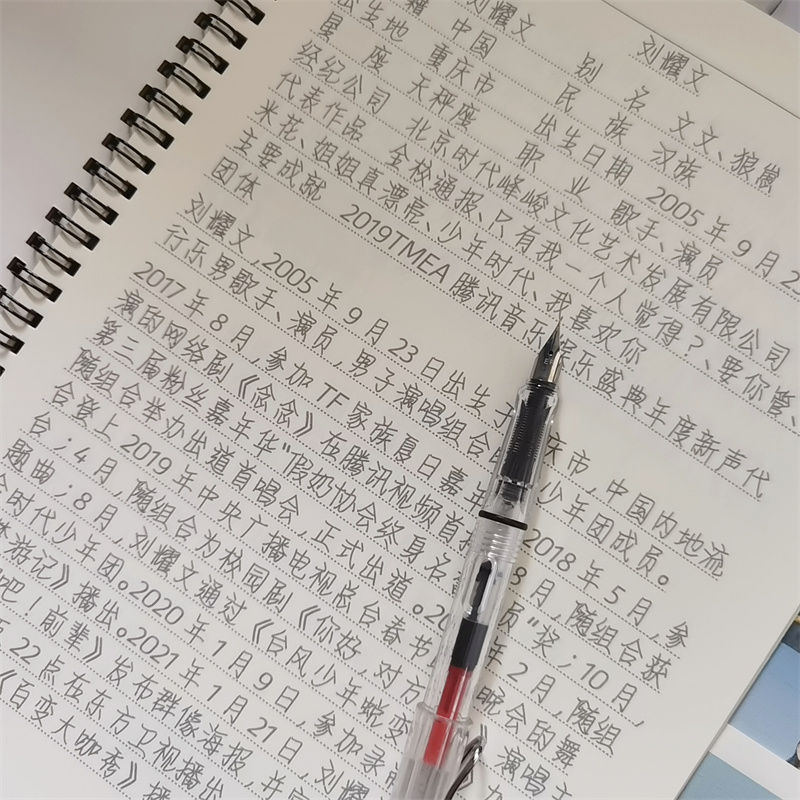 刘耀文 刘耀文
籍 中国 别 名 文文、狼崽
出生地 重庆市 民 族 汉族
星 座 天秤座 出生日期 2005年9月23
经纪公司 北京时代峰峻文化艺术发展有限公司
职 业 歌手、演员
代表作品 全校通报、只有我一个人觉得?、要你管、
米花、姐姐真漂亮、少年时代、我喜欢你
主要成就 2019TMEA腾讯音乐娱乐盛典年度新声代
团体
刘耀文,2005年9月23日出生于 庆市,中国内地流
行乐男歌手、演员,男子演唱组合 少年团成员。
2017年8月,参加TF家族夏日嘉 2018年5月,参
演的网络剧《念念》在腾讯视频首 8月,随组合获
第三届粉丝嘉年华"假奶协会终身名 员"奖;10月,
随组合举办出道首唱会,正式出道。20 年2月,随组
合登上2019年中央广播电视总台春节 晚会的舞
台;4月,随组合为校园剧《你好,对方 演唱主
题曲;8月,刘耀文通过《台风少年蜕变 加
时代少年团。2020年1月9日,参加录
游记》播出。2021年1月21日,刘耀
吧!前辈》发布群像海报,并
22点在东方卫视播出
《百变大咖秀》播